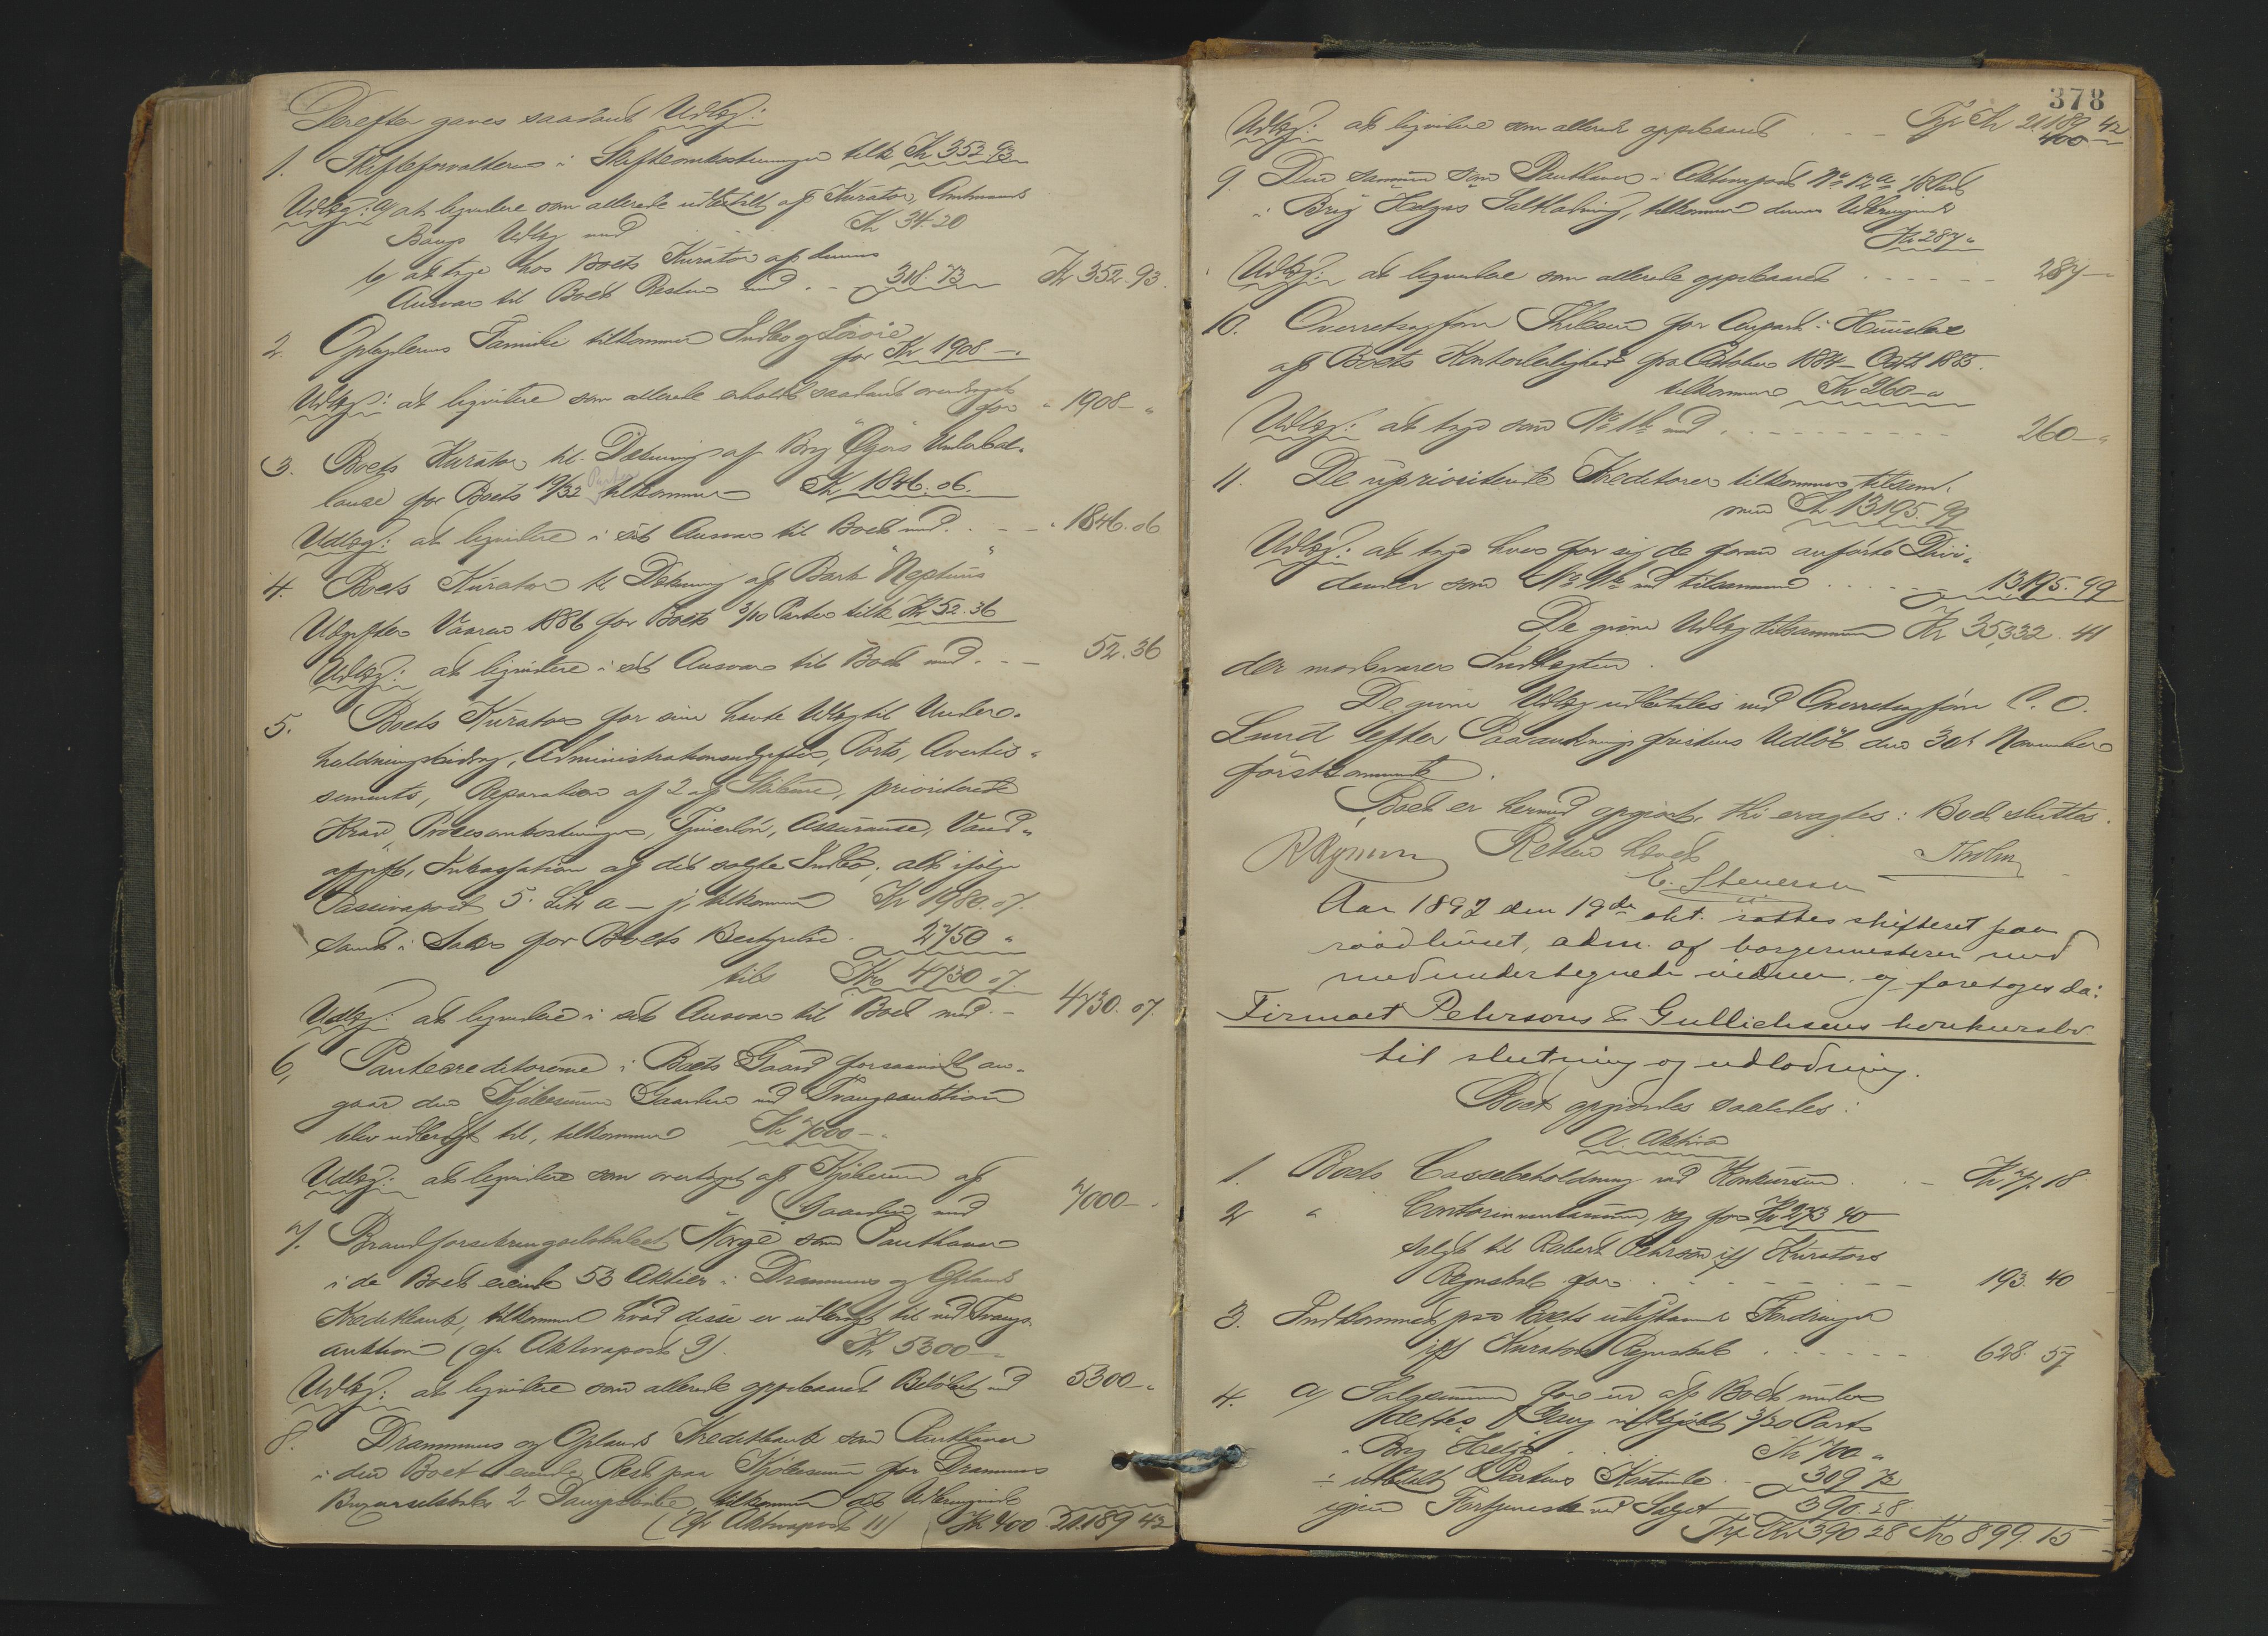 Derefter gaves saadant Udlæg:
1. Skifteforvalteren i Skifteomkostninger tilk. Kr 352.93
Udlæg: a) at liqvidere som allerede udbetalt af Kurator, Amtmand
Bangs Udlæg med Kr 34.20
b) at tage hos Boets Kurator af dennes
Ansvar til Boet Resten med . - 318.73 Kr 352.93.
2. Opbyderens Familie tilkommer Indbo og Løsøre
for Kr 1908 -.
Udlæg: at liqvidere som allerede erholdt saadant overdraget
for " 1908 - "
3. Boets Kurator til Dekning af Brig "Ægirs" Underbal-
lance for Boets 19/32 Parter tilkommer Kr 1846.06.
Udlæg: at liqvidere i sit Ansvar til Boet med . - - " 1846.06
4. Boets Kurator til Dekning af Bark "Neptuns"
Udgifter Vaaren 1886 for Boets 3/10 Parter tilk. Kr 52.36
Udlæg: at liqvidere i sit Ansvar til Boet med . - - 52.36
5. Boets Kurator for sine havte Udlæg til Under-
holdningsbidrag, Administrationsudgifter, Porto, Avertis-
sements, Reparation af 2 af Skibene, prioriterede
Krav, Procesomkostninger, Tjenerløn, Assurance, Vand-
afgift, Inkassation af det solgte Indbo, alt ifølge
Passivapost 5 Litr a - j, tilkommer Kr 1980.07.
samt i Salær for Boets Bestyrelse . 2750 "
tils. Kr 4730.07.
Udlæg: at liqvidere i sit Ansvar til Boet med . - 4730.07.
6, Pantecreditorerne i Boets Gaard forsaavidt an-
gaar den Kjøbesum Gaarden ved Tvangsauktion
blev udbragt til, tilkommer Kr 7000 - .
Udlæg: at liqvidere som overtaget af Kjøberen af
Gaarden med 7000 - .
7. Brandforsikringsselskabet "Norge" som Panthaver
i de Boet eiende 53 Aktier i Drammens og Oplands
Kreditbank, tilkommer hvad disse er udbragt til ved Tvangs-
auktion (cfr Aktivapost 9). Kr 5300 -
Udlæg: at liqvidere som allerede oppebaaret Beløbet med 5300 - "
8. Drammens og Oplands Kreditbank som Panthaver
i den Boet eiende Rest paa Kjøbesum for Drammens
Bugserselskabs 2 Dampskibe, tilkommer det Udbringende
(Cfr Aktivapost 11) Kr 400 21.189 42
378
Trp Kr 21189 42
Udlæg: at liqvidere som allerede oppebaaret . - - 400 -
9. Den samme som Panthaver i Aktivapost No 12 a 1/8 Part
i Brig Helgas Saltladning, tilkommer dennes Udbringende
Kr 287 "
Udlæg: at liqvidere som allerede oppebaaret . - - - - 287 - "
10. Overretssagfører Thilesen for Anpart i Huusleie
af Boets Kontorleilighed fra Oktober 1884 - Oktb 1885.
tilkommer Kr 260 - "
Udlæg: at tage som No 1 b med . - - - - - - - 260 - "
11. De uprioriterede Kreditorer tilkommer tilsam-
men Kr 13195.99
Udlæg: at tage hver for sig de foran anførte Divi-
dender som No 1 b med tilsammen . - - - 13,195.99
De givne Udlæg tilsammen Kr 35,332.41
der modsvarer Indtegten.
De givne Udlæg udbetales ved Overretssagfører C. O.
Lund efter Paaankningsfristens Udløb den 30te November
førstkommende.
Boet er hermed opgjort, thi eragtes: Boet sluttes.
Retten hævet
E. Steuersen
Aar 1892 den 19de okt. sattes skifteret paa
raadhuset, adm. af borgermesteren med
medundertegnede vidner, og foretoges da:
Firmaet Pehrsons & Gullichsens konkursbo
til slutning og udlodning.
Boet opgjordes saaledes:
A. Aktiva
1. Boets Cassebeholdning ved Konkursen . - Kr 77.18
2 " Contorinventarium, tax for Kr 273 40
solgt til Robert Pehrson iflg Kurators
Regnskab for . - - - - - - - 193. 40
3. Indkommet paa Boets udestaaende Fordringer
iflg Kurators Regnskab . . - - - - - 628. 57
4. a) Salgssummen for en af Boet under
dettes Gang indkjøbt 3/20 Part
i Brig "Helga" . . . Kr 700 "
÷ udbetalt Partens Kostende . - 309 72
igjen Fortjeneste ved Salget 390.28
Trp Kr 390 28 Kr 899.15